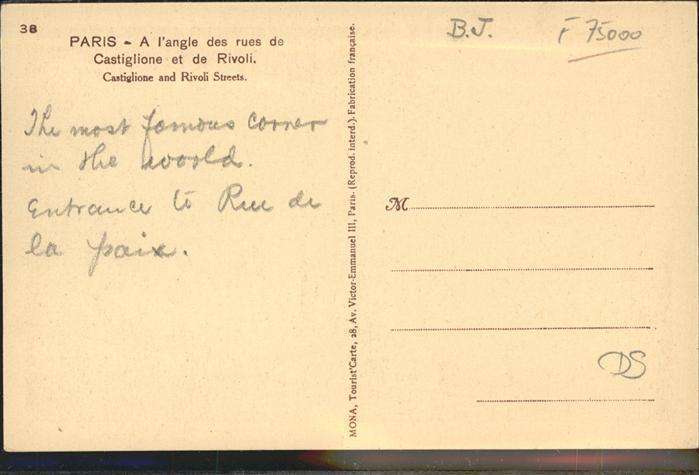 38
PARIS - A l'angle des rues de
Castiglione et de Rivoli.
Castiglione and Rivoli Streets.
The most famous corner
in the world.
Entrance to Rue de
la paix.
MONA, Tourist'Carte, 28, Av. Victor-Emmanuel III, Paris. (Reprod. interd.). Fabrication française.
B.J.
F 75000
M
DS